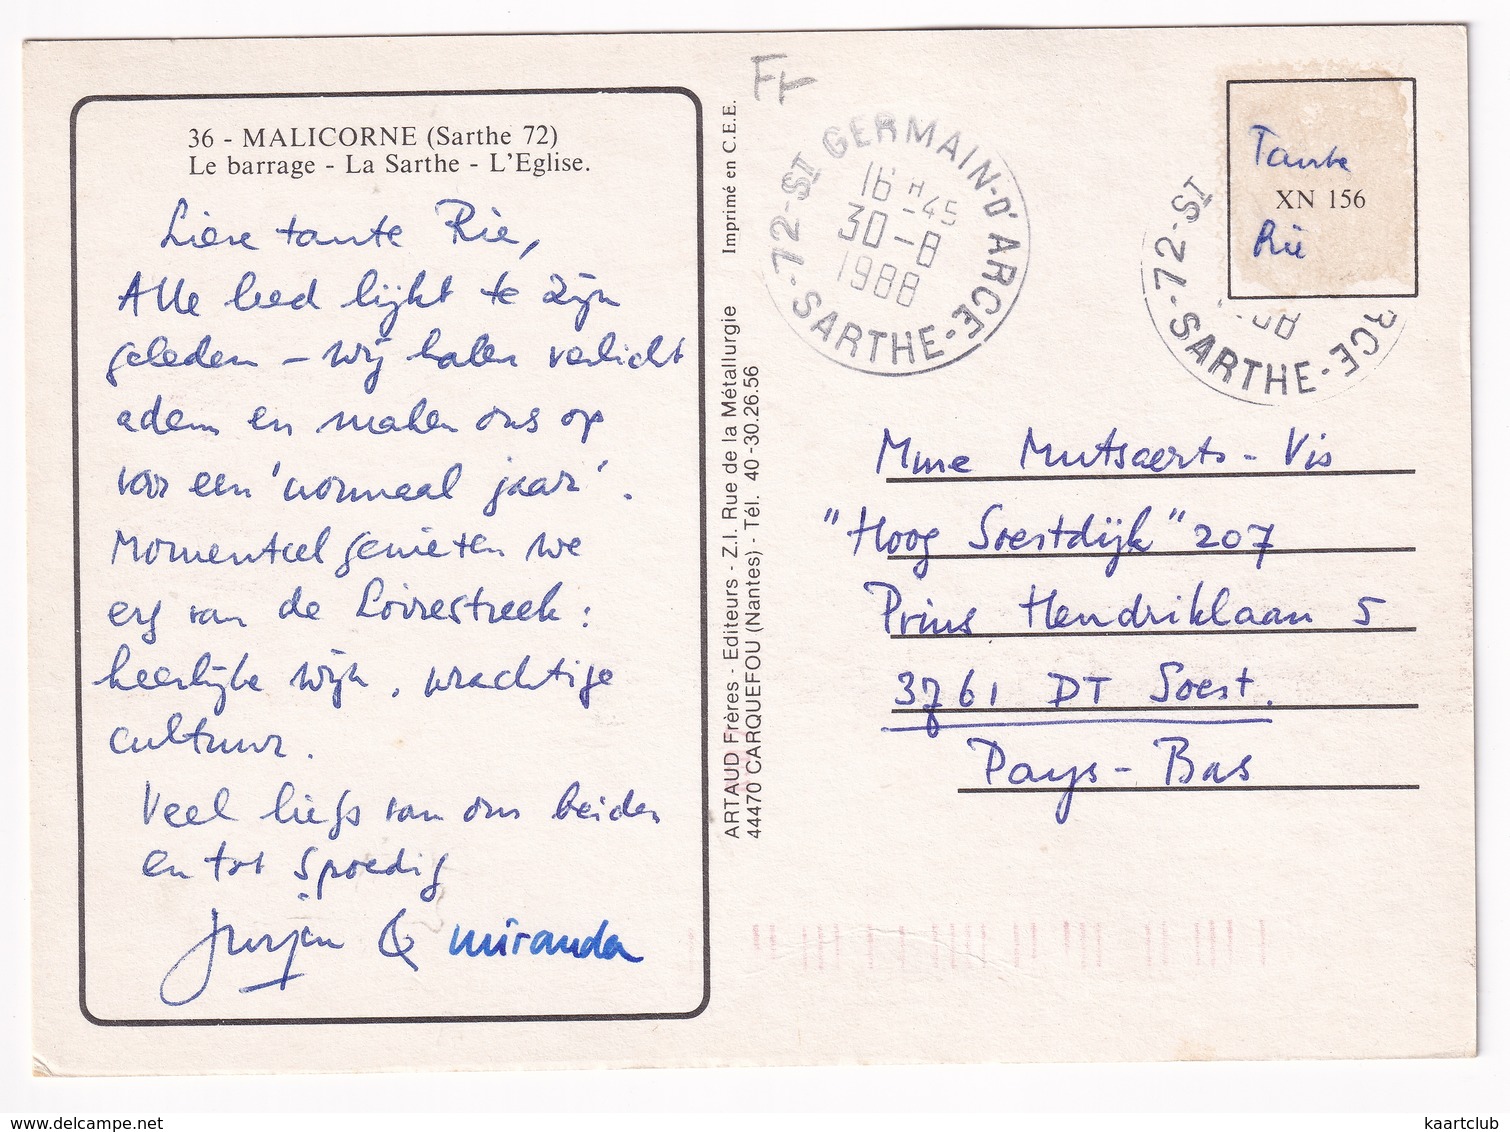 36 - MALICORNE (Sarthe 72)
Le barrage - La Sarthe - L'Eglise.
Lieve tante Rie,
Alle leed lijkt te zijn
geleden – wij halen verlicht
adem en maken ons op
voor een 'normaal jaar'.
Momenteel genieten we
erg van de Loirestreek:
heerlijke wijn, prachtige
cultuur.
Veel liefs van ons beiden
en tot spoedig
Jurjen & miranda
Imprimé en C.E.E.
ARTAUD Frères - Editeurs - Z.I. Rue de la Métallurgie
44470 CARQUEFOU (Nantes) - Tél. 40-30.26.56
72-ST GERMAIN-D'ARCE
16 H 45
30-8
1988
-SARTHE-
Tante
XN 156
Rie
72-ST
RCE
-SARTHE-
Mme Mutsaerts-Vis
"Hoog Soestdijk" 207
Prins Hendriklaan 5
3761 DT Soest.
Pays-Bas
kaartclub